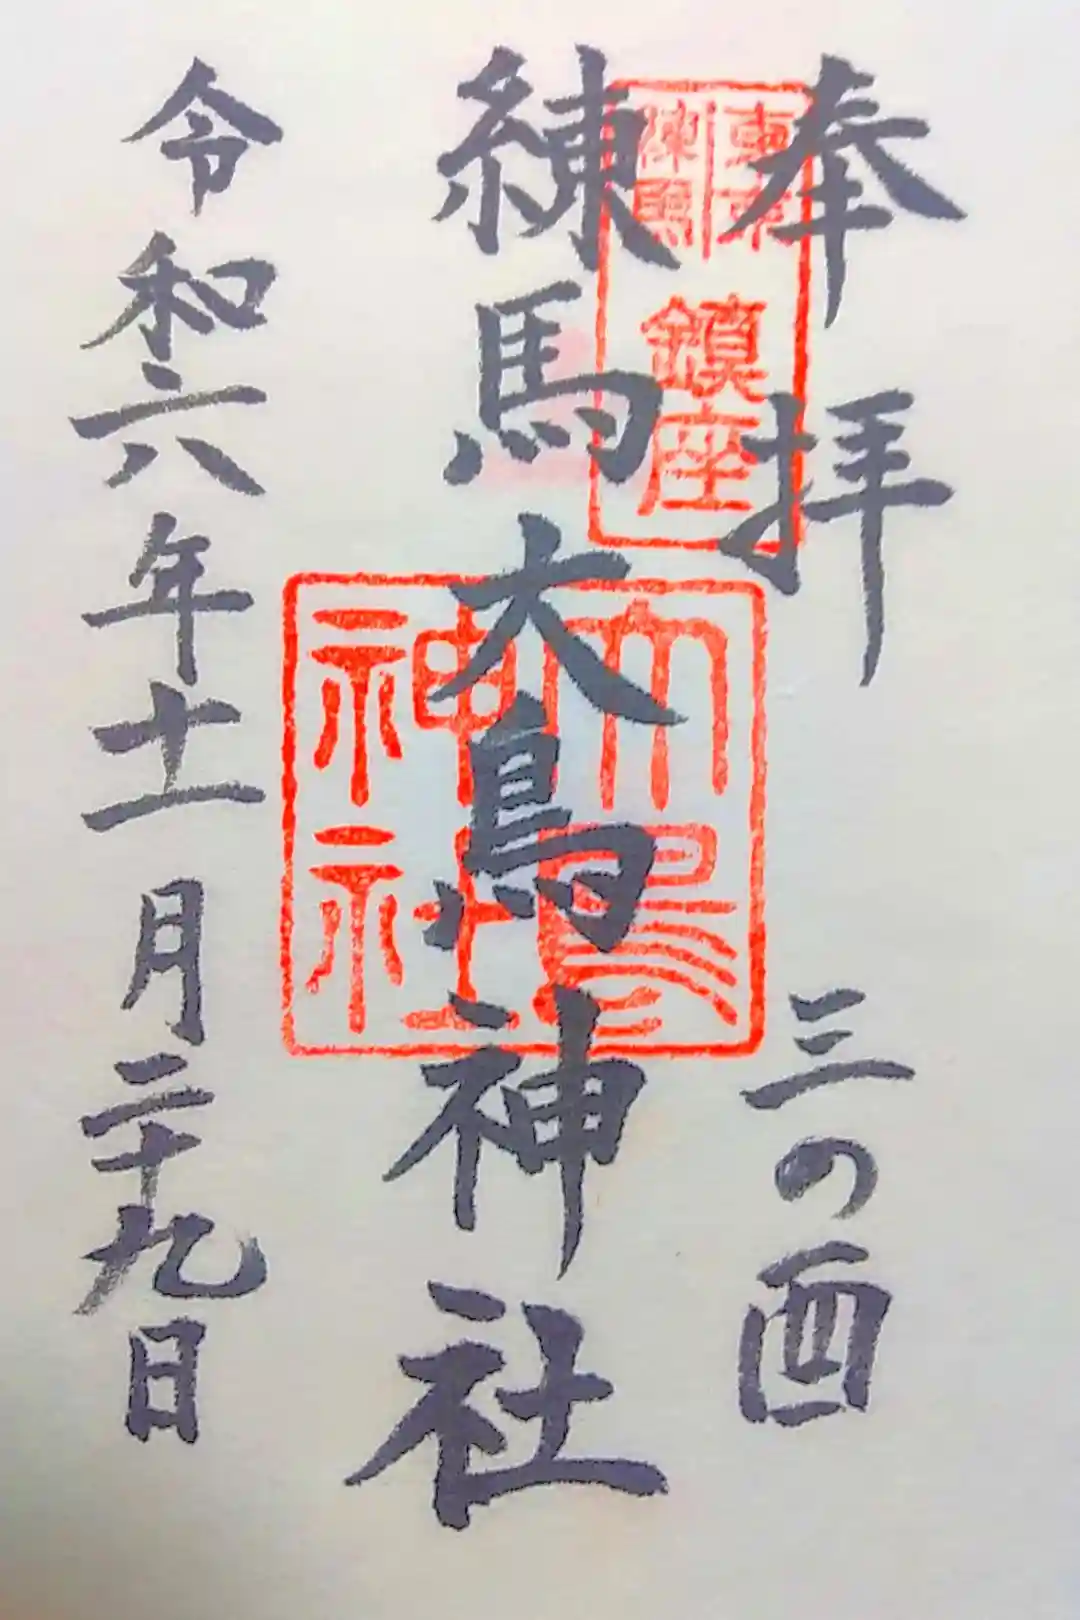 奉拝 三の酉
練馬大鳥神社
令和六年十一月二十九日
東京
練馬
鎮座
大鳥
神社